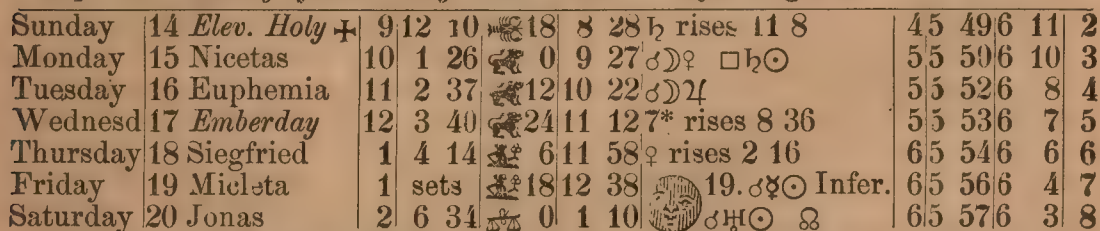 Sunday 14 Elev. Holy ✠ 9 12 10 ♋ 18 8 28 ♄ rises 11 8 4 5 49 6 11 2
Monday 15 Nicetas 10 1 26 ♌ 0 9 27 ☌☽♀ □♄☉ 5 5 50 6 10 3
Tuesday 16 Euphemia 11 2 37 ♌ 12 10 22 ☌☽♃ 5 5 52 6 8 4
Wednesd 17 Emberday 12 3 40 ♌ 24 11 12 7* rises 8 36 5 5 53 6 7 5
Thursday 18 Siegfried 1 4 14 ♍ 6 11 58 ♀ rises 2 16 6 5 54 6 6 6
Friday 19 Micleta 1 sets ♍ 18 12 38 19. ☌☿☉ Infer. 6 5 56 6 4 7
Saturday 20 Jonas 2 6 34 ♎ 0 1 10 ☌♅☉ ☊ 6 5 57 6 3 8